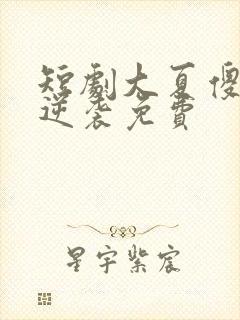 短劇大夏傻
逆袭免費
星宇紫宸